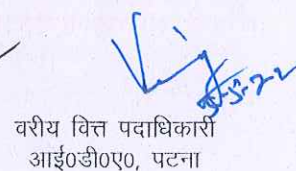 वरीय वित्त पदाधिकारी
आई०डी०ए०, पटना